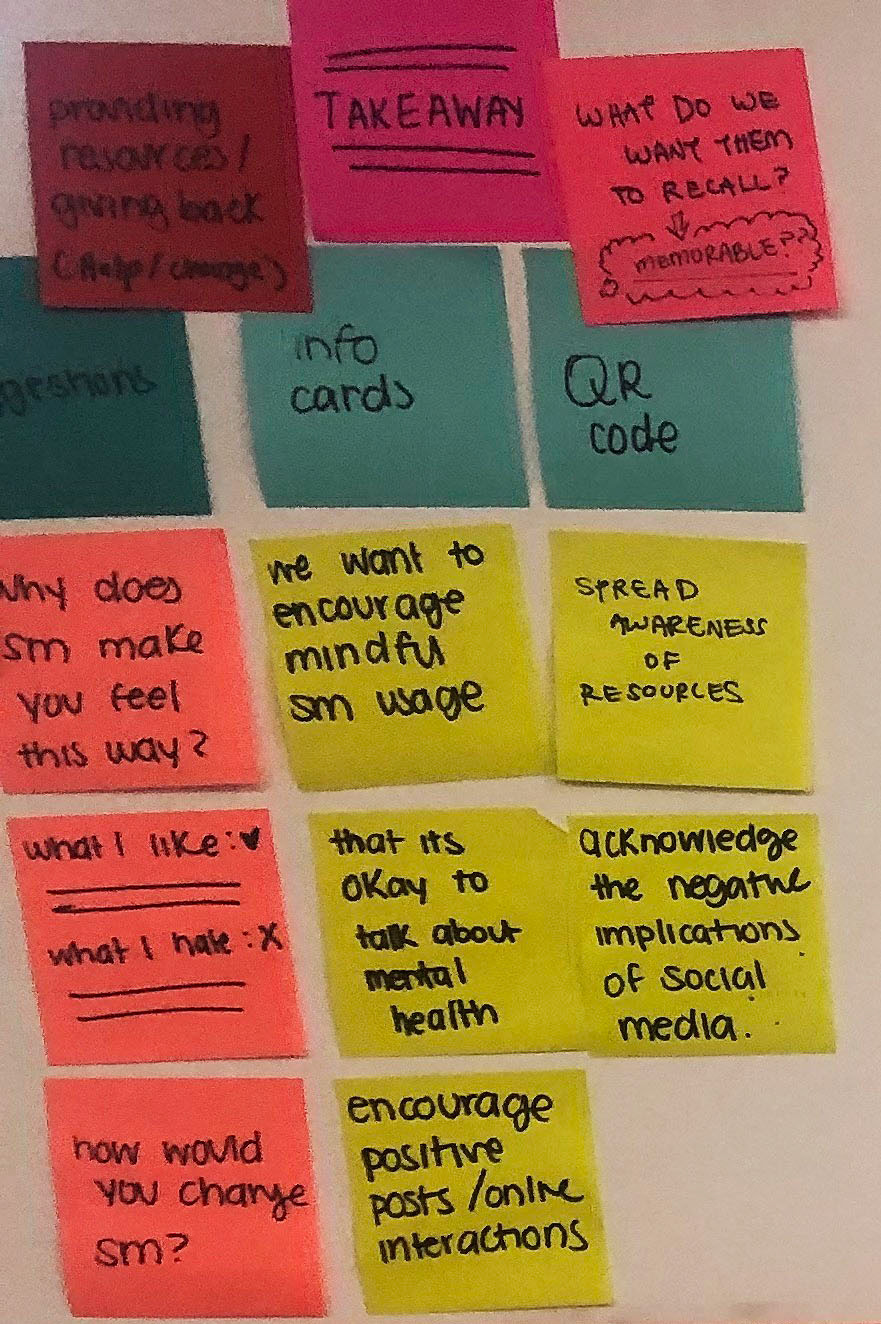 providing
resources/
giving back
(Help/change)
TAKEAWAY
WHAT DO WE
WANT THEM
TO RECALL?
MEMORABLE??
gestions
info
cards
QR
code
why does
sm make
you feel
this way?
we want to
encourage
mindful
sm usage
SPREAD
AWARENESS
OF
RESOURCES
what I like:♥
what I hate:X
that its
okay to
talk about
mental
health
acknowledge
the negative
implications
of social
media.
how would
you change
sm?
encourage
positive
posts/online
interactions